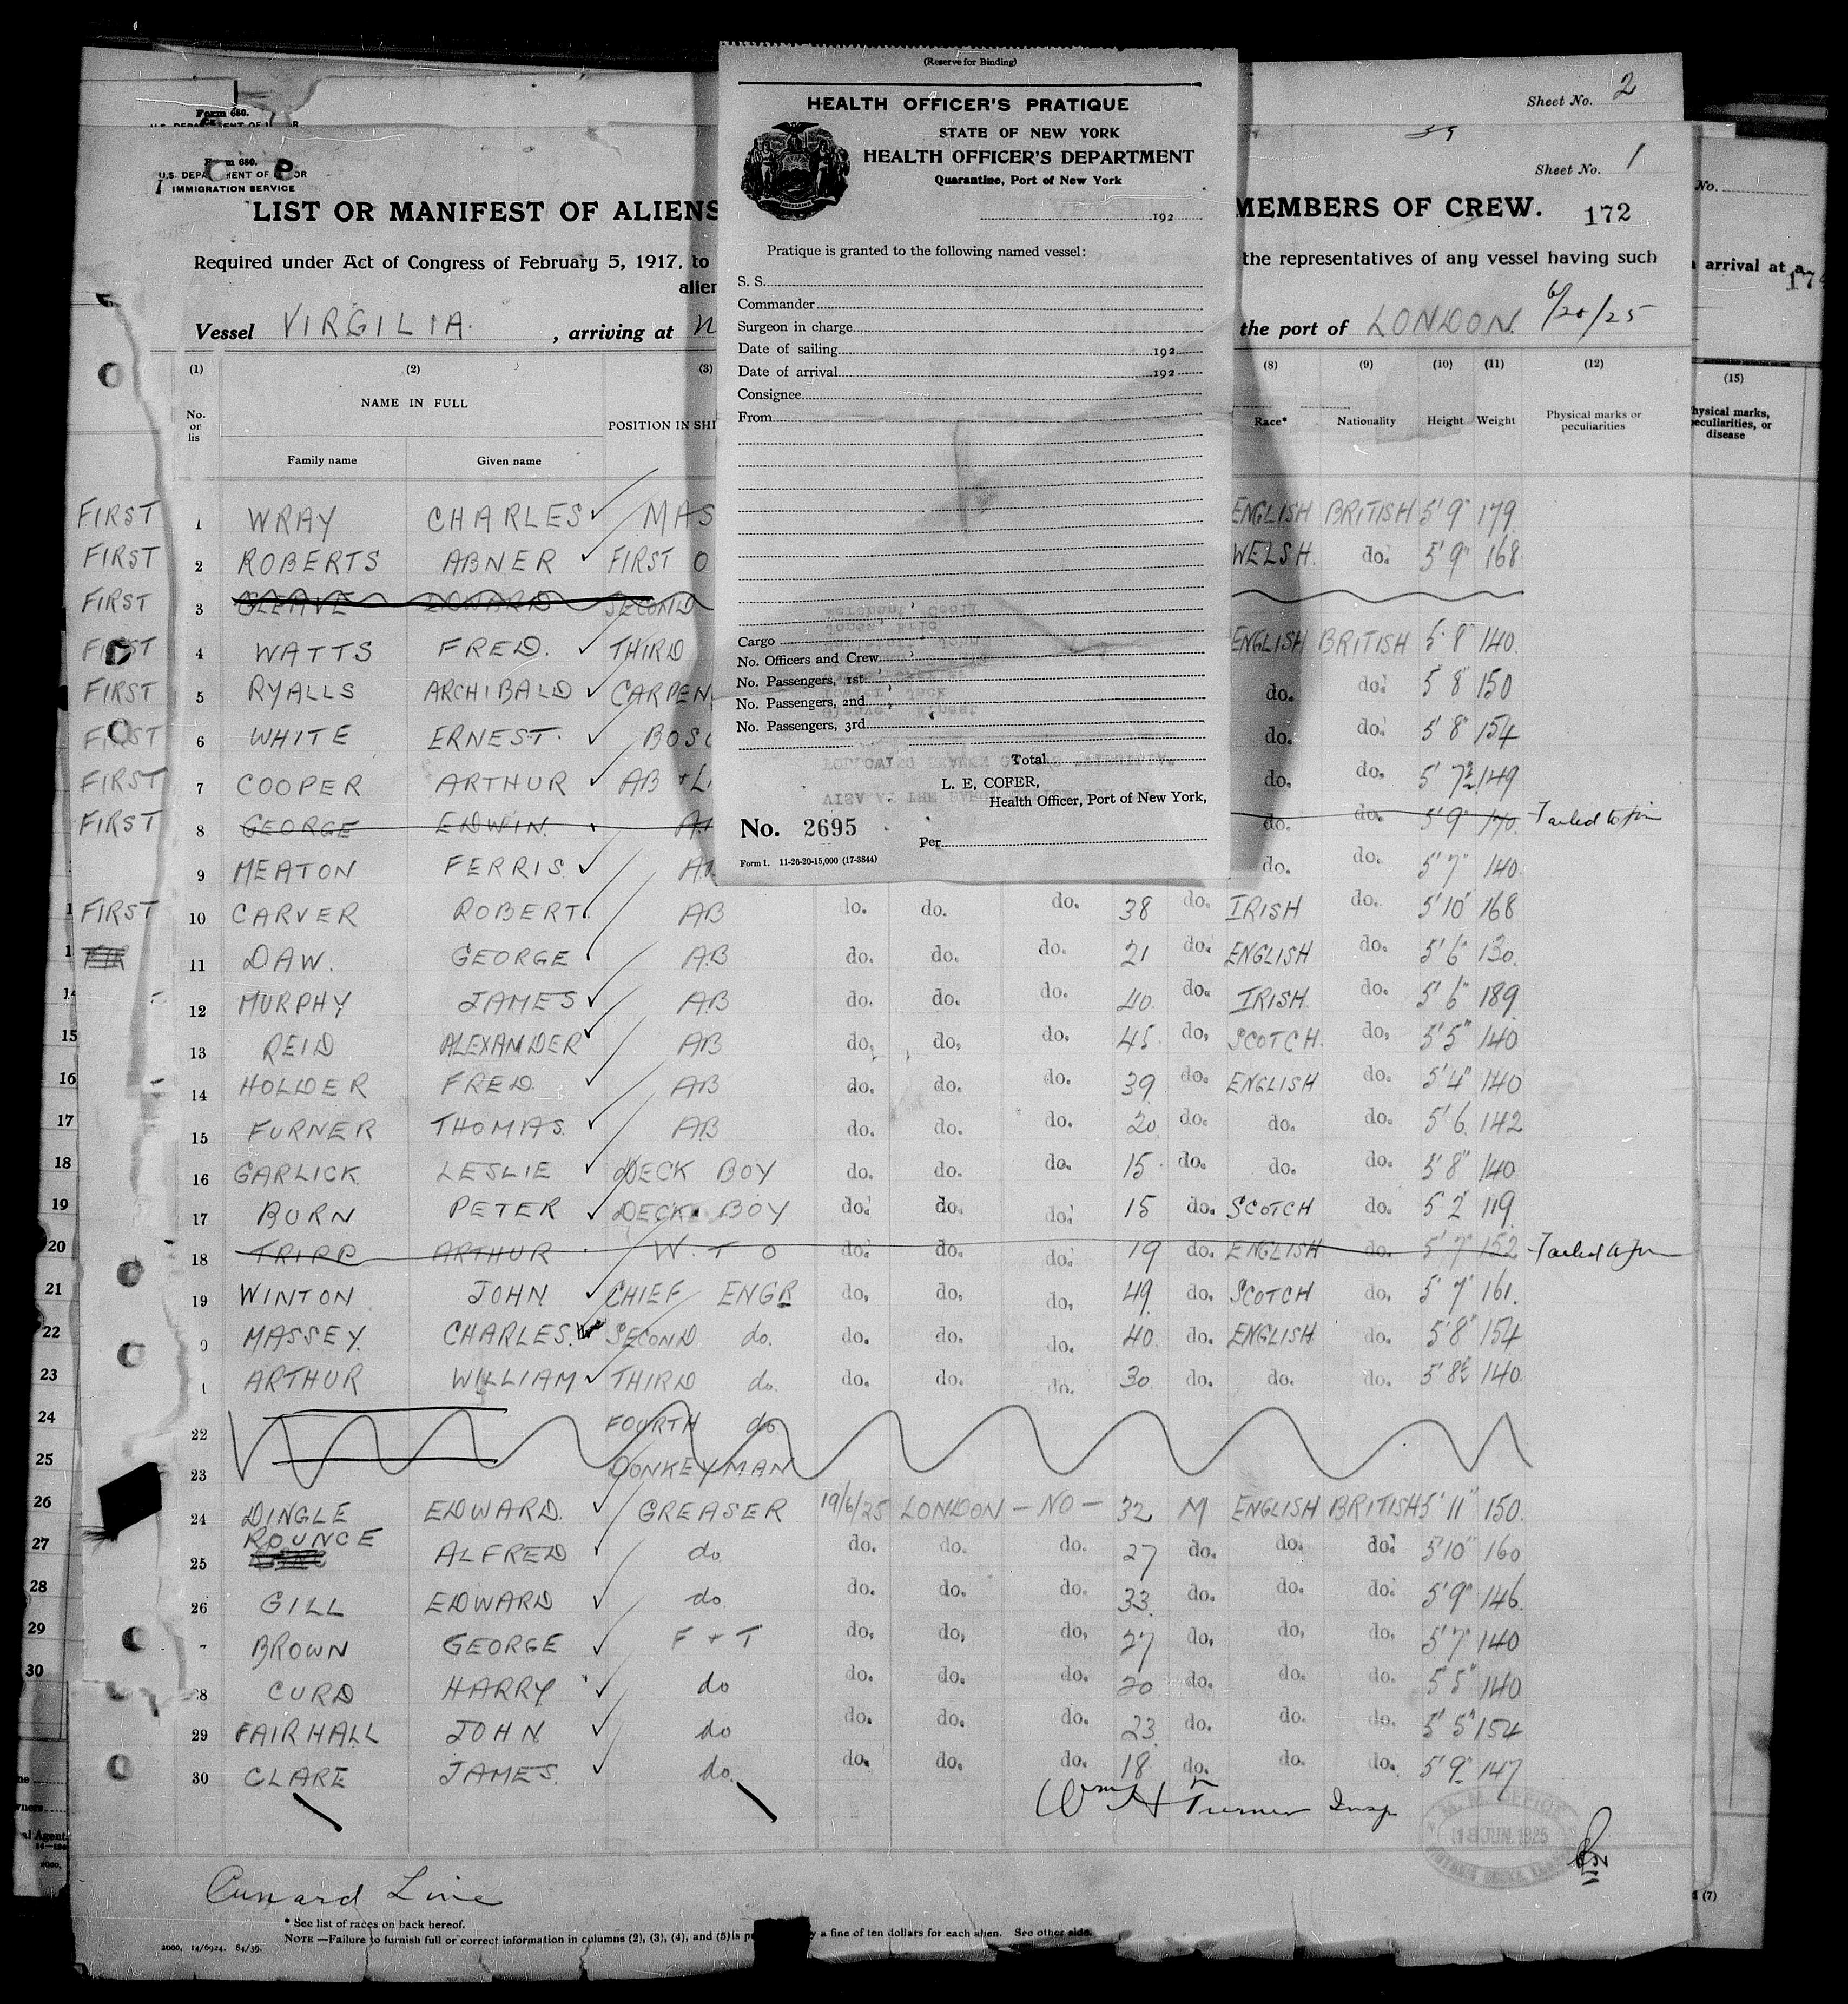 (Reserve for Binding)
HEALTH OFFICER'S PRATIQUE
STATE OF NEW YORK
HEALTH OFFICER'S DEPARTMENT
Quarantine, Port of New York
192
Pratique is granted to the following named vessel:
S. S.
Commander
Surgeon in charge
Date of sailing 192
Date of arrival 192
Consignee
From
Cargo
No. Officers and Crew
No. Passengers, 1st
No. Passengers, 2nd
No. Passengers, 3rd
Total
L. E. COFER,
Health Officer, Port of New York,
No. 2695
Per
Form 1. 11-26-20-15,000 (17-3844)
Sheet No. 2
Form 680.
Form 680.
U.S. DEPA ENT OF OR
IMMIGRATION SERVICE
Sheet No. 1
LIST OR MANIFEST OF ALIENS MEMBERS OF CREW. 172
Required under Act of Congress of February 5, 1917, to the representatives of any vessel having such
alien
arrival at a
Vessel VIRGILIA. , arriving at the port of LONDON. 6/20/25
(1) (2) (3) (8) (9) (10) (11) (12) (15)
No. on lis NAME IN FULL POSITION IN SHI Race* Nationality Height Weight Physical marks or peculiarities
Family name Given name
hysical marks, peculiarities, or disease
FIRST 1 WRAY CHARLES MAS ENGLISH BRITISH 5'9" 179
FIRST 2 ROBERTS ABNER FIRST O WELSH. do. 5'9" 168
FIRST 3 GLEAVE EDWARD SECOND
FIRST 4 WATTS FRED. THIRD ENGLISH BRITISH 5'8 140.
FIRST 5 RYALLS ARCHIBALD CARPEN do. do. 5'8" 150
FIRST 6 WHITE ERNEST. BOS do. do. 5'8" 154
FIRST 7 COOPER ARTHUR AB + L do. do. 5'7½ 149
FIRST 8 GEORGE EDWIN. A do. do. 5'9" 170. Failed to join
9 MEATON FERRIS. A do. do. 5'7" 140.
FIRST 10 CARVER ROBERT. AB do. do. do. 38 do. IRISH do. 5'10" 168
11 DAW. GEORGE AB do. do. do. 21 do. ENGLISH do. 5'6" 130.
12 MURPHY JAMES AB do. do. do. 40. do. IRISH. do. 5'6" 189
13 REID ALEXANDER AB do. do. do. 45. do. SCOTCH. do. 5'5" 140
14 HOLDER FRED. AB do. do. do. 39 do. ENGLISH do. 5'4" 140
15 FURNER THOMAS. AB do. do. do. 20 do. do. do. 5'6. 142
16 GARLICK LESLIE DECK BOY do. do. do. 15. do. do. do. 5'8" 140
17 BURN PETER DECK BOY do. do. do. 15 do. SCOTCH do. 5'2" 119
18 TRIPP ARTHUR W. T O do. do. do. 19 do. ENGLISH do. 5'7" 152 Failed to Join
19 WINTON JOHN CHIEF ENGR do. do. do. 49 do. SCOTCH do. 5'7" 161.
0 MASSEY. CHARLES. SECOND do. do. do. do. 40. do. ENGLISH do. 5'8" 154
1 ARTHUR WILLIAM THIRD do. do. do. do. 30 do. do. do. 5'8½ 140.
22 FOURTH do
23 DONKEYMAN
24 DINGLE EDWARD. GREASER 19/6/25 LONDON - NO - 32 M ENGLISH BRITISH 5'11" 150.
25 ROUNCE ALFRED do do. do. do. 27 do. do. do. 5'10" 160
26 GILL EDWARD do. do. do. do. 33 do. do. do. 5'9" 146.
7 BROWN GEORGE F + T do. do. do. 27 do. do. do. 5'7" 140
28 CURD HARRY do do. do. do. 20 do. do. do. 5'5" 140
29 FAIRHALL JOHN do do. do. do. 23 do. do. do. 5'5" 154
30 CLARE JAMES. do. do. do. do. 18 do. do. do. 5'9" 147
Wm H Turner Insp
M. M. OFFICE
18 JUN. 1925
Cunard Line
* See list of races on back hereof.
NOTE—Failure to furnish full or correct information in columns (2), (3), (4), and (5) is pu y a fine of ten dollars for each alien. See other side.
2000. 14/6924. 84/39.